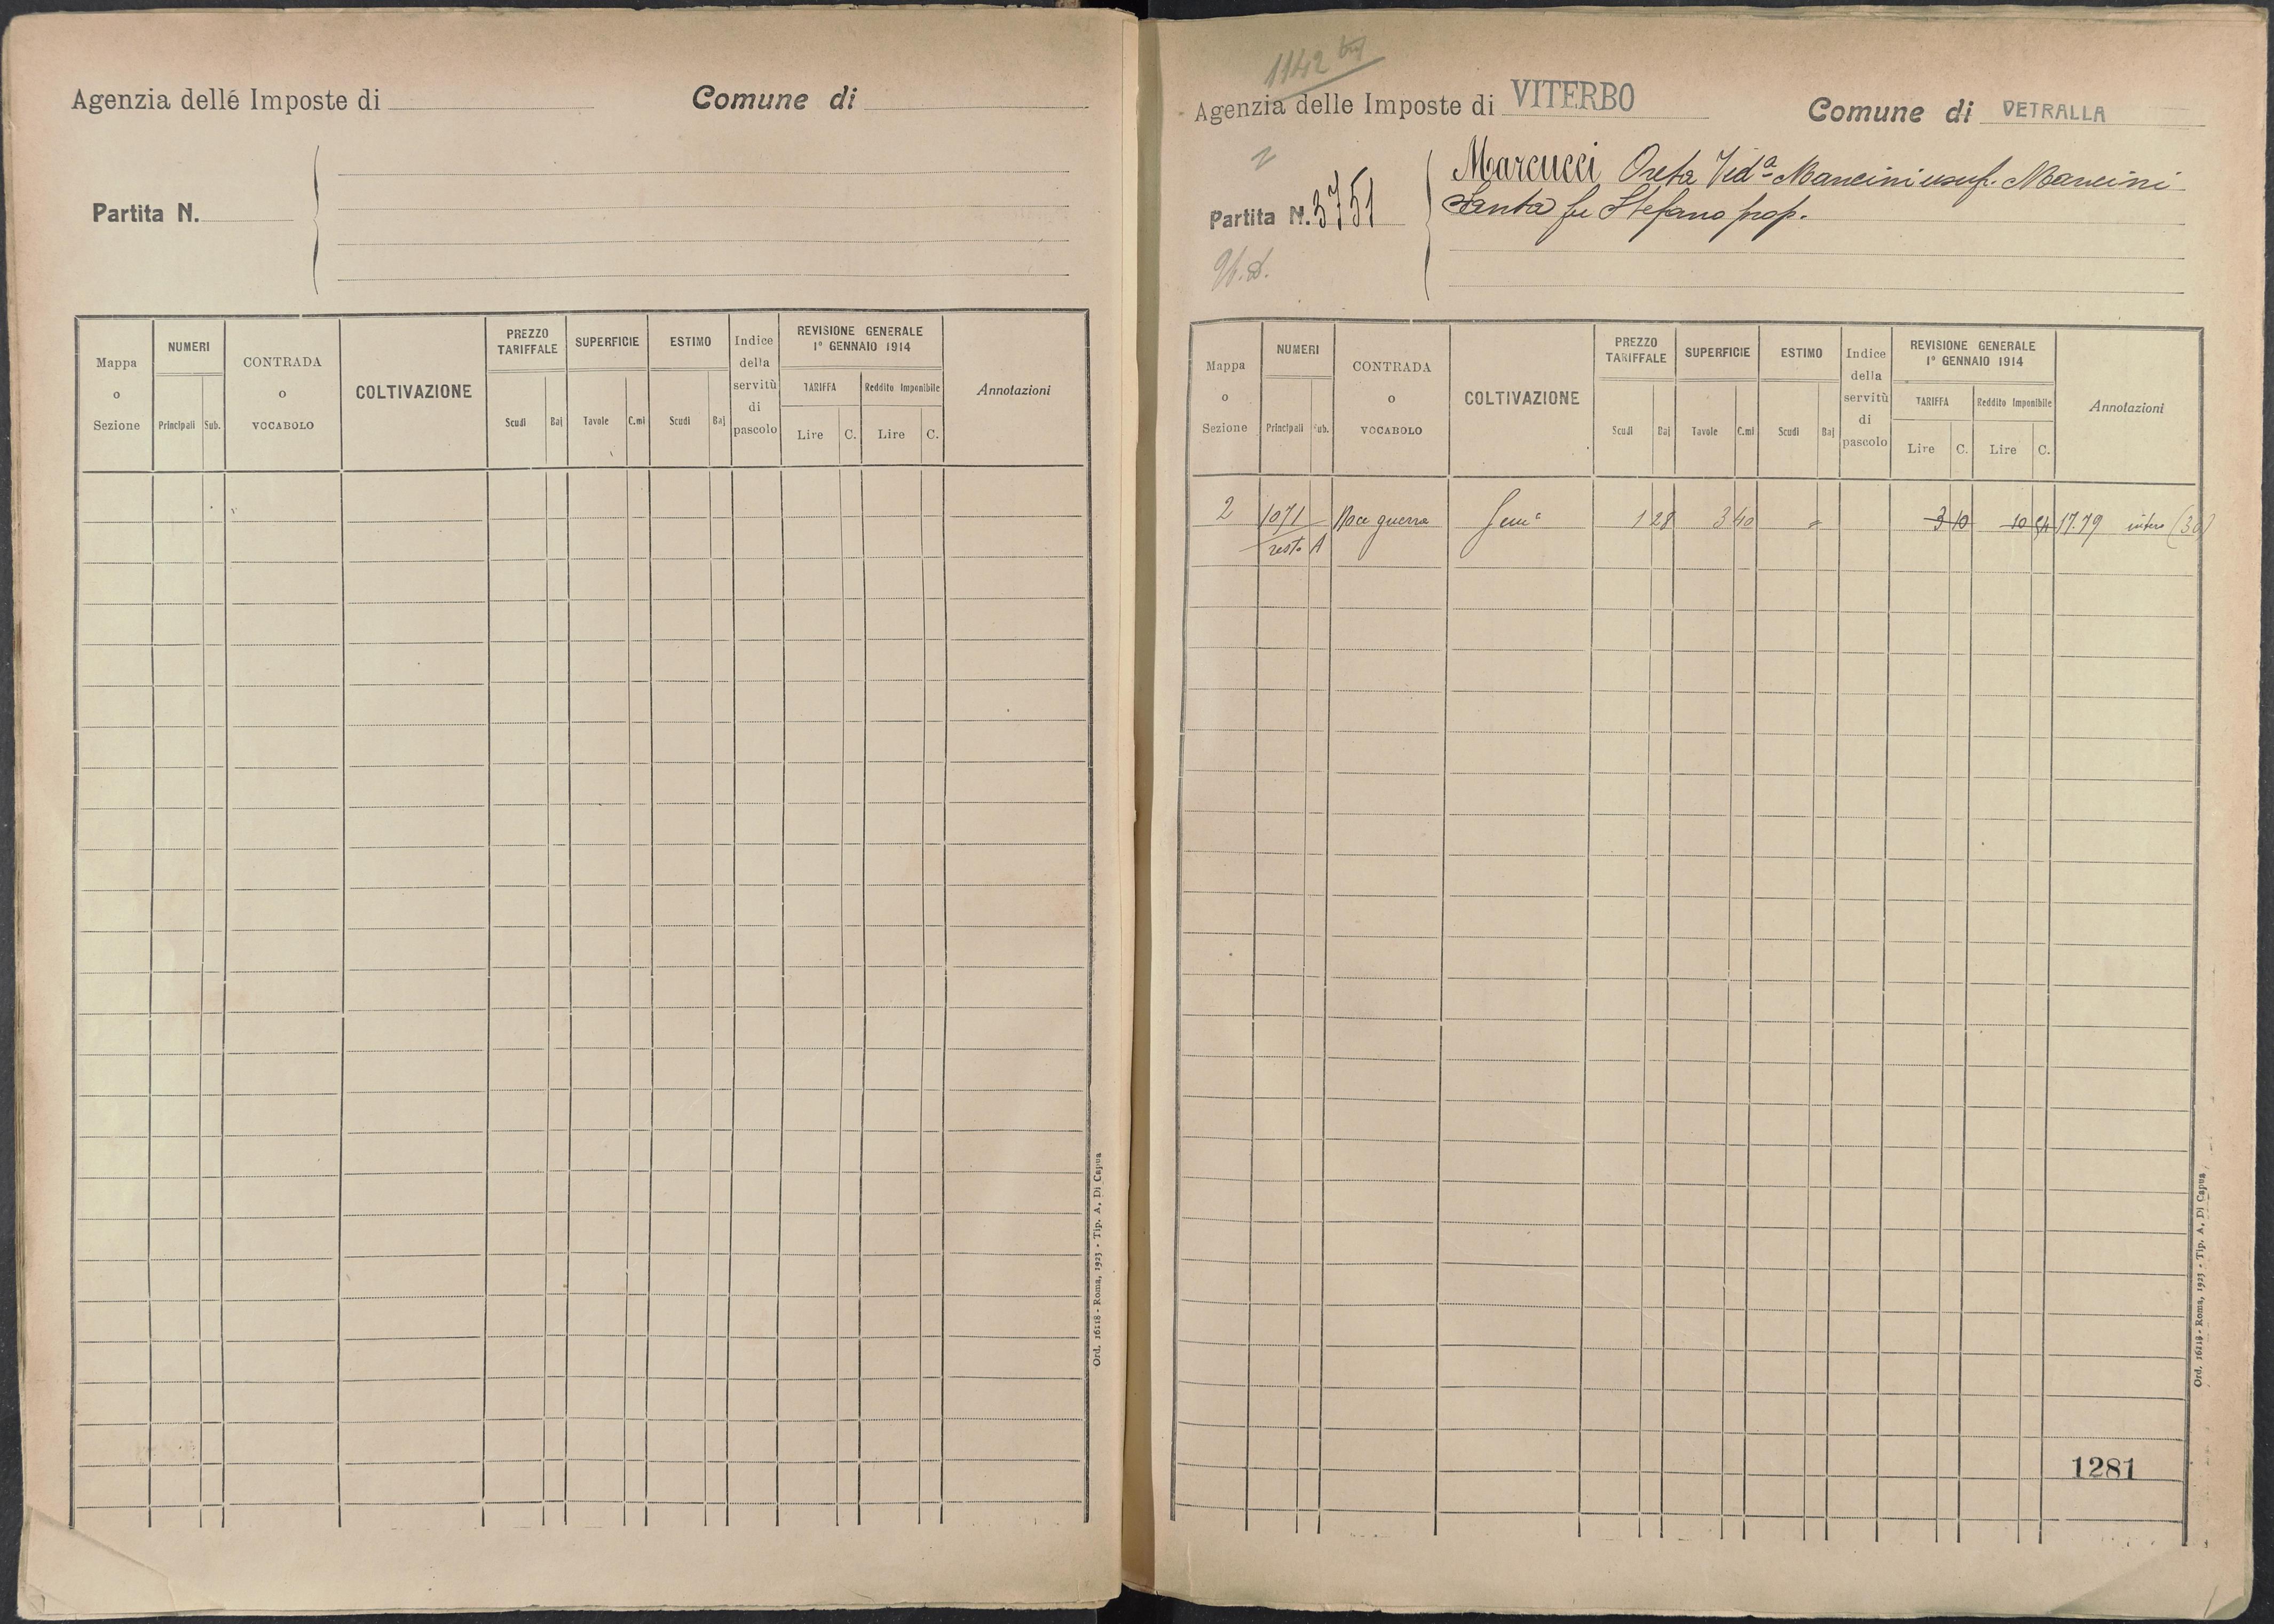 Agenzia delle Imposte di
Comune di
Partita N.
Mappa o Sezione
NUMERI
Principali Sub.
CONTRADA o VOCABOLO
COLTIVAZIONE
PREZZO TARIFFALE
Scudi Baj
SUPERFICIE
Tavole C.mi
ESTIMO
Scudi Baj
Indice della servitù di pascolo
REVISIONE GENERALE
1º GENNAIO 1914
TARIFFA Reddito Imponibile
Lire C. Lire C.
Annotazioni
Ord. 16118 - Roma, 1923 - Tip. A. Di Capua
1142
Agenzia delle Imposte di VITERBO
Comune di VETRALLA
Partita N. 3751
Marcucci Oreta Ved.a Mancini usuf. Mancini
Santa fu Stefano prop.
Mappa o Sezione
NUMERI
Principali Sub.
CONTRADA o VOCABOLO
COLTIVAZIONE
PREZZO TARIFFALE
Scudi Baj
SUPERFICIE
Tavole C.mi
ESTIMO
Scudi Baj
Indice della servitù di pascolo
REVISIONE GENERALE
1º GENNAIO 1914
TARIFFA Reddito Imponibile
Lire C. Lire C.
Annotazioni
2 1071 Noce guerra 1 28 3 40 3 10 10 54 17.79 intero (30)
resto A
1281
Ord. 16118 - Roma, 1923 - Tip. A. Di Capua